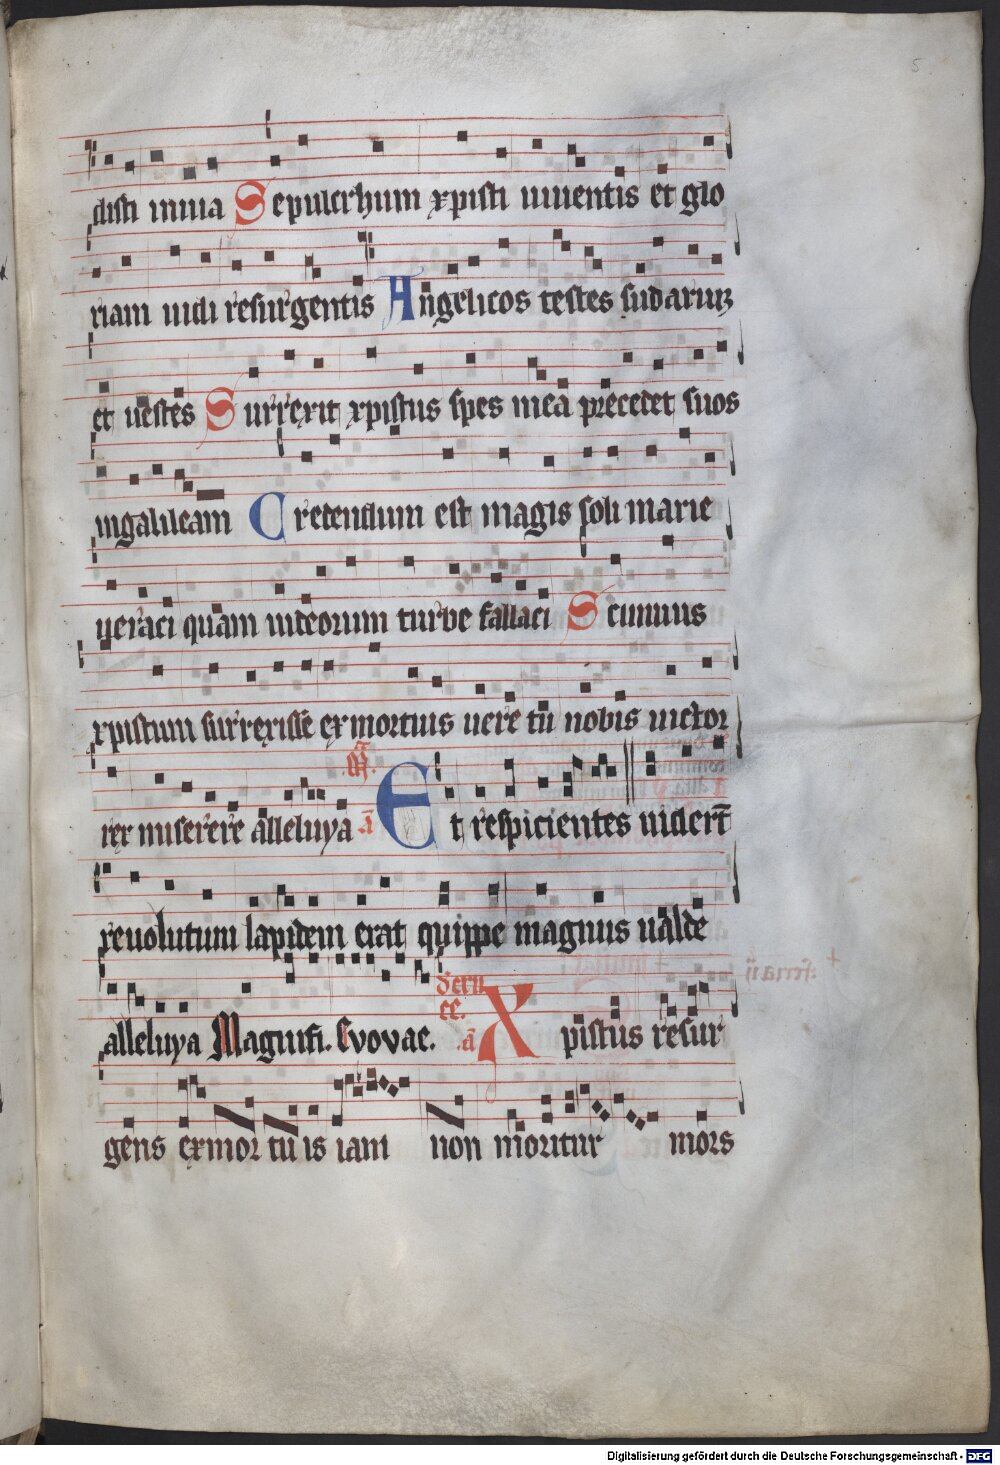 5
disti in uia Sepulcrhum xpisti uiuentis et glo
riam uidi resurgentis Angelicos testes sudariuz
et uestes Surrexit xpistus spes mea precedet suos
ingalileam Credendum est magis soli marie
ueraci quam iudeorum turbe fallaci Scimus
xpistum surrexisse exmortuis uere tu nobis uictor
rex miserere alleluya a Et respicientes uidert
reuolutum lapidem erat quippe magnus ualde
alleluya Magnifi. Evovae. a Xpistus resur
gens exmortuis iam non moritur mors
Digitalisierung gefördert durch die Deutsche Forschungsgemeinschaft - DFG